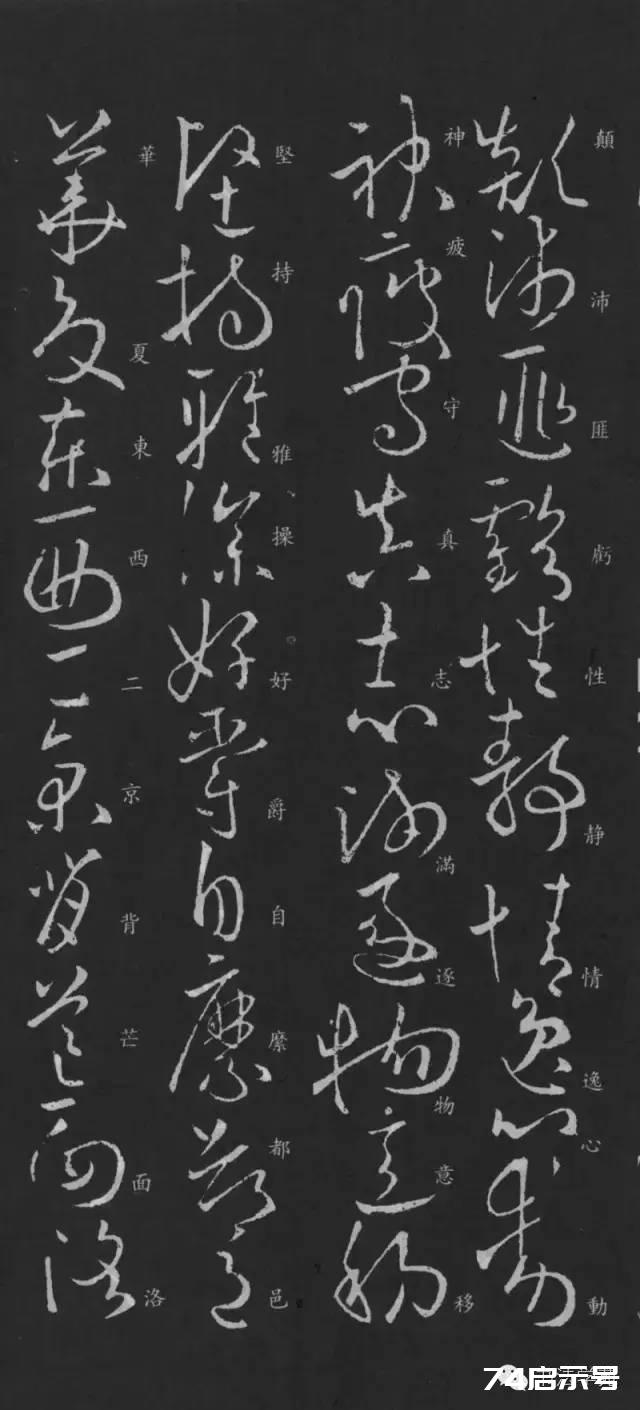 顛沛匪虧性静情逸心動
神疲守真志滿逐物意移
堅持雅操好爵自縻都邑
華夏東西二京背芒面洛
74启示号